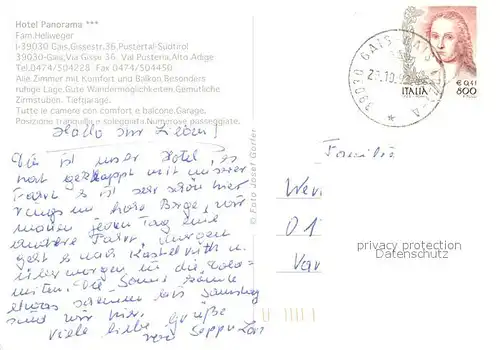 Hotel Panorama ***
Fam. Hellweger
I-39030 Gais, Gissestr. 36, Pustertal-Südtirol
39030-Gais, Via Gissè 36 Val Pusteria, Alto Adige
Tel. 0474/504228 Fax 0474/504450
Alle Zimmer mit Komfort und Balkon. Besonders
ruhige Lage. Gute Wandermöglichkeiten. Gemütliche
Zirmstuben. Tiefgarage.
Tutte le camere con comfort e balcone. Garage.
Posizione tranquilla e soleggiata. Numerose passeggiate.
Hallo Ihr Lieben!
Das ist unser Hotel, es
hat geklappt mit unserer
Fahrt es ist sehr schön hier
rings um hohe Berge, wir
machen jeden Tag eine
andere Fahrt, morgen
geht es nach Kastelruth u.
übermorgen in die Dolo-
miten. Die Sonne könnte
etwas scheinen bis Samstag
sind wir hier.
Viele liebe Grüße
von Seppu Lori
© Foto Josef Gorfer
39030 GAIS
ITALIA
€ 0,41
800
Familie
Wer
01
Var
privacy protection
Datenschutz